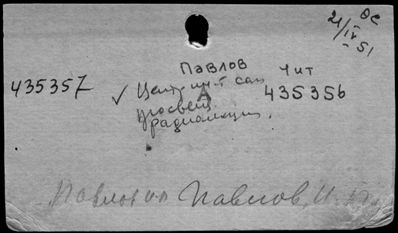 ОС
21/IV-51
Павлов
435357 Чит
✓ Центр. инст сан
А 435356
просвещ.
радиолекция.
Павлов Павлов, И.